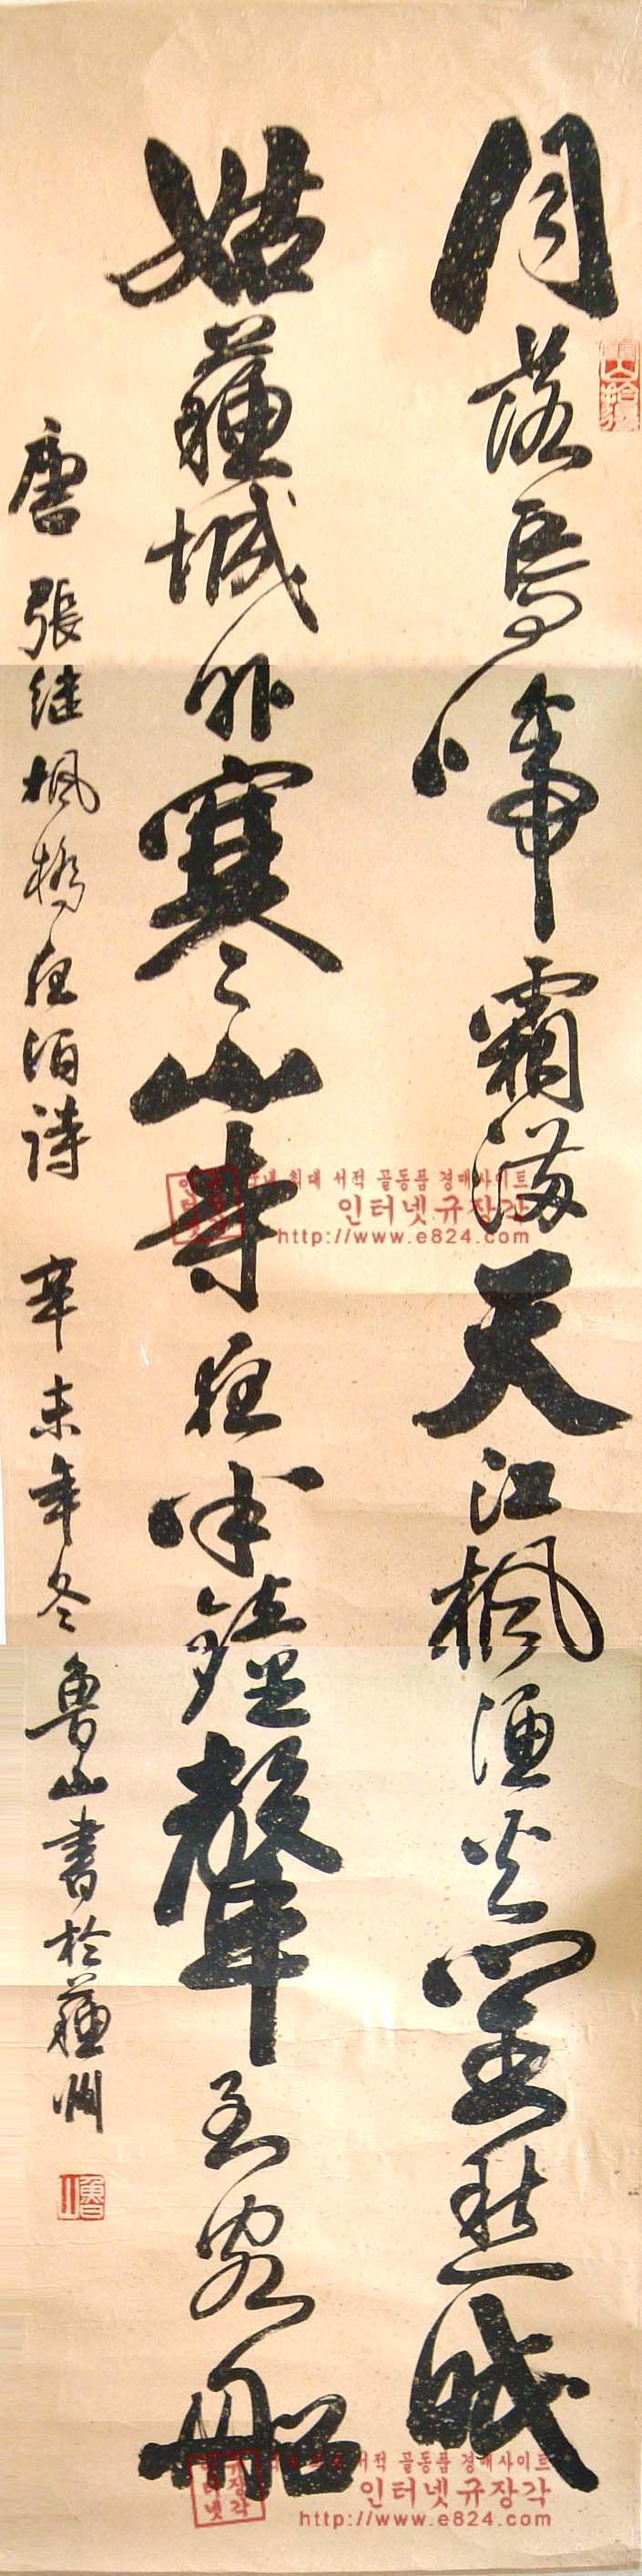 月落烏啼霜滿天江楓漁火對愁眠
姑蘇城外寒山寺夜半鐘聲到客船
唐張继楓橋夜泊詩 辛未年冬魯山書於蘇州
魯山
서적 골동품 경매사이트
인터넷규장각
http://www.e824.com
서적 골동품 경매사이트
인터넷규장각
http://www.e824.com